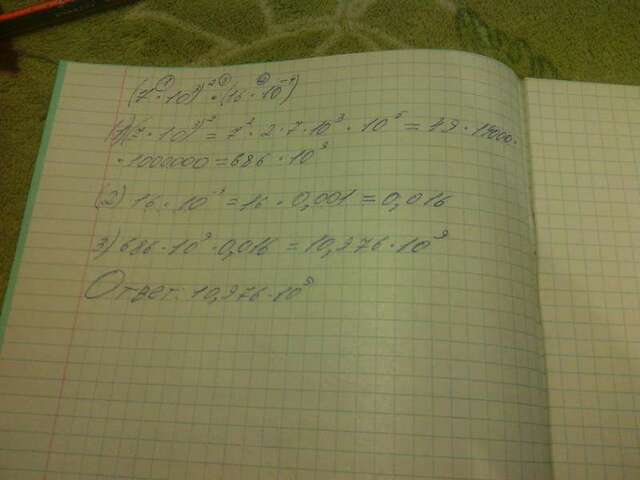 (7 · 10³)² · (16 · 10⁻³)
(1) (7 · 10³)² = 7² · 2 · 7 · 10³ · 10⁶ = 49 · 14000 ·
· 1000000 = 686 · 10⁹
(2) 16 · 10⁻³ = 16 · 0,001 = 0,016
3) 686 · 10⁹ · 0,016 = 10,976 · 10⁹
Ответ: 10,976 · 10⁹